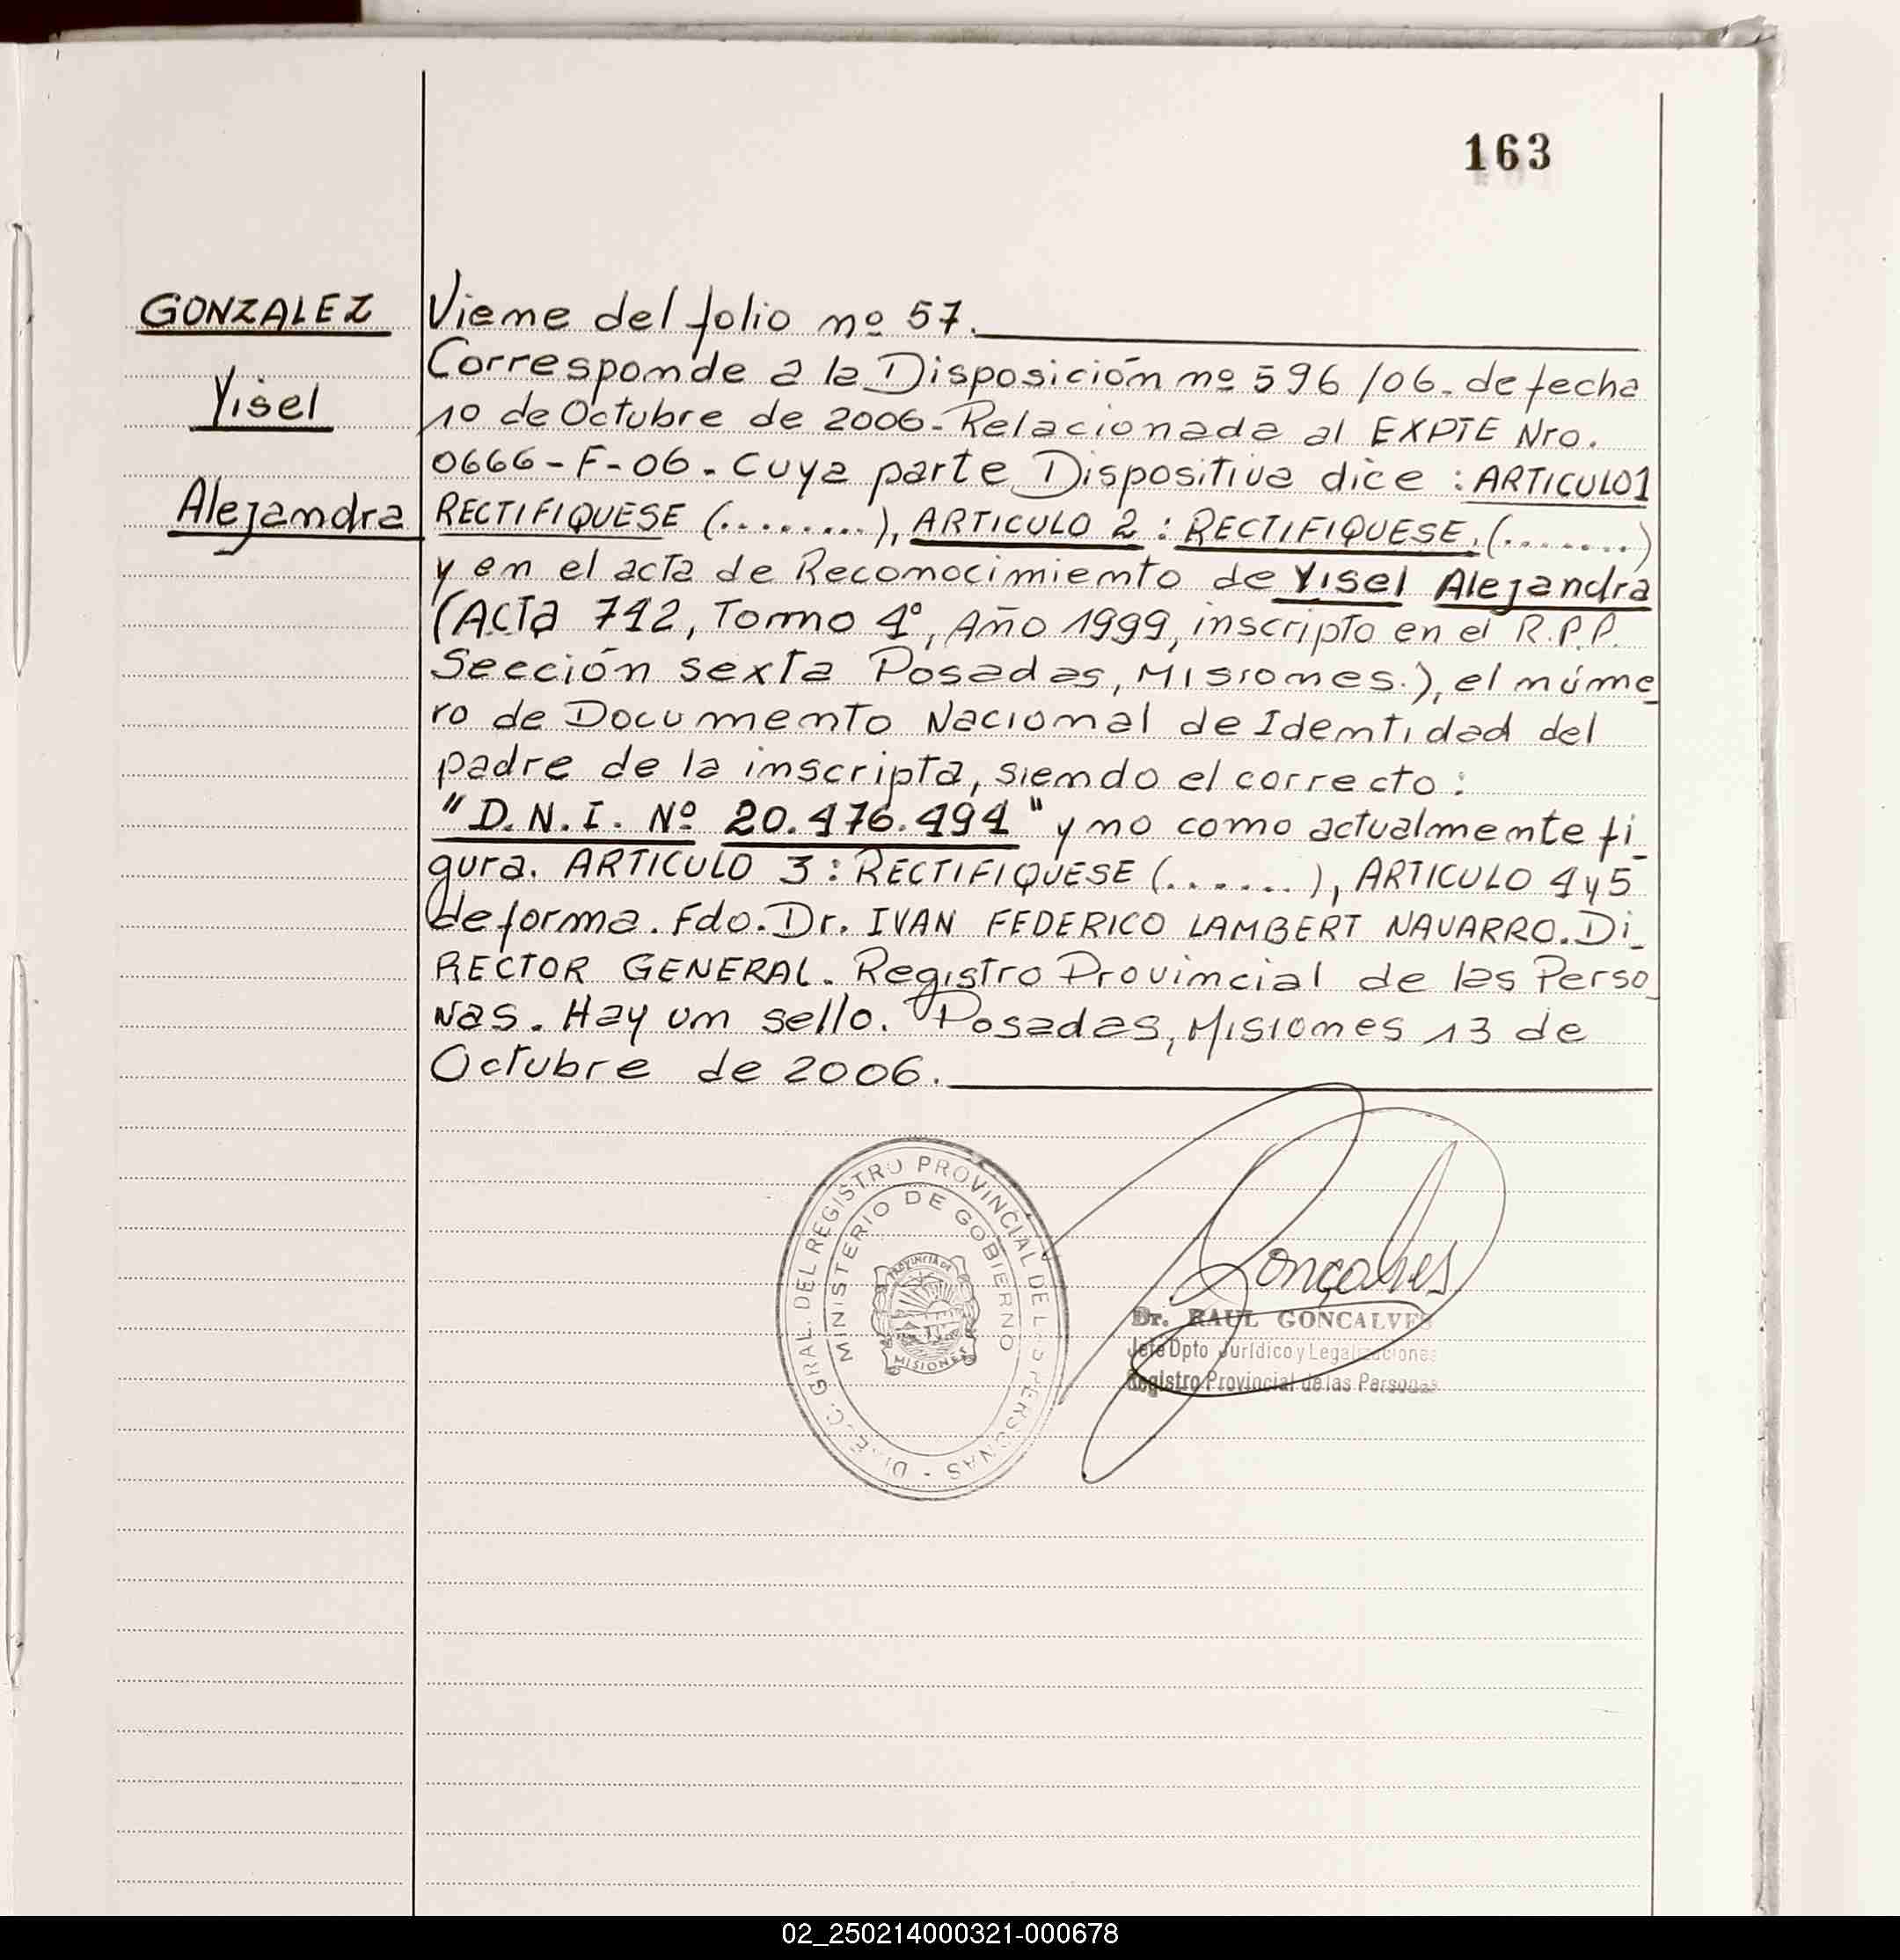 163
GONZALEZ
Yisel
Alejandra
Viene del folio nº 57.
Corresponde a la Disposición nº 596/06. de fecha
10 de Octubre de 2006 - Relacionada al EXPTE Nro.
0666 - F - 06. Cuya parte Dispositiva dice : ARTICULO 1
RECTIFIQUESE (........), ARTICULO 2 : RECTIFIQUESE. (.......)
y en el acta de Reconocimiento de Yisel Alejandra
(Acta 742, Tomo 4º, Año 1999, inscripto en el R.P.P.
Sección sexta Posadas, Misiones.), el núme_
ro de Documento Nacional de Identidad del
padre de la inscripta, siendo el correcto :
"D.N.I. Nº 20.476.494" y no como actualmente fi_
gura. ARTICULO 3 : RECTIFIQUESE (.......), ARTICULO 4 y 5
de forma. Fdo. Dr. IVAN FEDERICO LAMBERT NAVARRO. Di_
RECTOR GENERAL. Registro Provincial de las Perso_
nas. Hay un sello. Posadas, Misiones 13 de
Octubre de 2006.
GRAL. DEL REGISTRO PROVINCIAL DE L PERSONAS
MINISTERIO DE GOBIERNO
PROVINCIA DE
MISIONES
Gonçalves
Dr. RAUL GONCALVES
Jefe Dpto Jurídico y Legalizaciones
Registro Provincial de las Personas
02_250214000321-000678